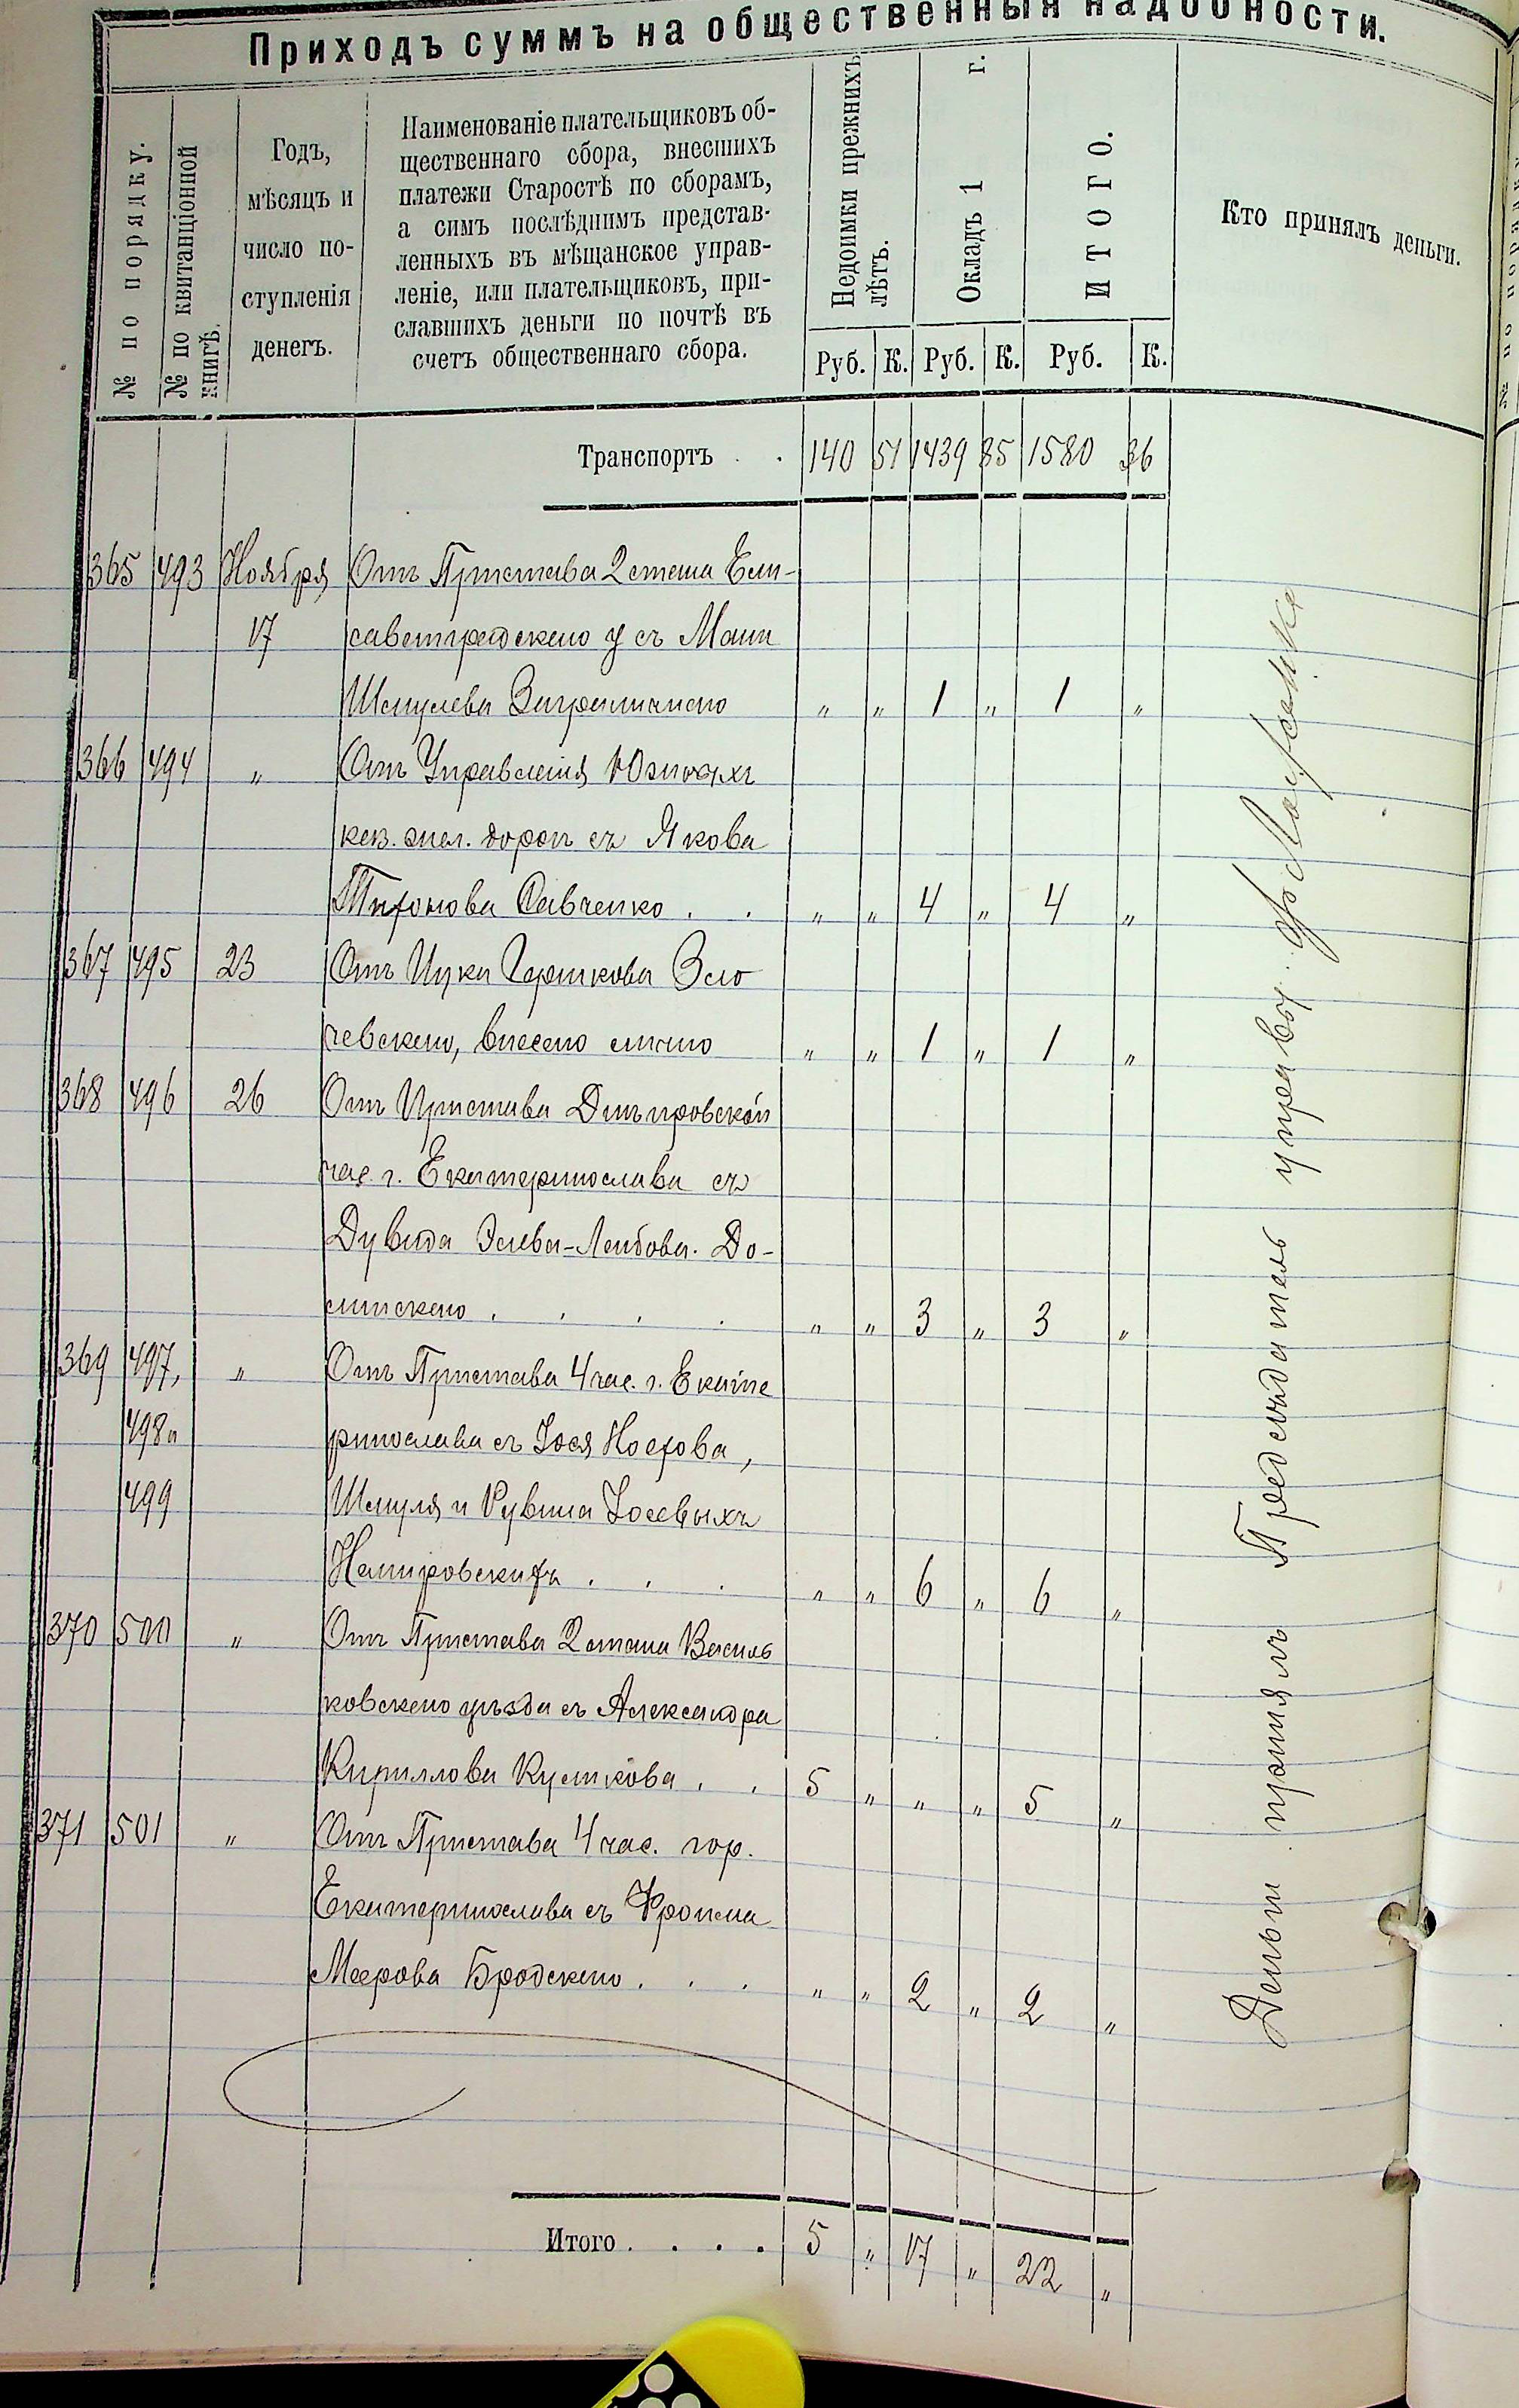 Приходъ суммъ на общественныя надобности.
№ по порядку.
№ по квитанціонной
книгѣ.
Годъ,
мѣсяцъ и
число по-
ступленія
денегъ.
Наименованіе плательщиковъ об-
щественнаго сбора, внесшихъ
платежи Старостѣ по сборамъ,
а симъ послѣднимъ представ-
ленныхъ въ мѣщанское управ-
леніе, или плательщиковъ, при-
славшихъ деньги по почтѣ въ
счетъ общественнаго сбора.
Недоимки прежнихъ
лѣтъ.
Окладъ 1 г.
ИТОГО.
Кто принялъ деньги.
Руб. К. Руб. К. Руб. К.
Транспортъ . . 140 51 1439 85 1580 36
365 493 Ноября Отъ Пристава 2 стана Ели-
17 саветградского у съ
Шмулева " " 1 " 1 "
366 494 " Отъ Управленія Южныхъ
каз. жел. дорогъ съ Якова
Тихонова Савченко . . " " 4 " 4 "
367 495 23 Отъ Ицка Гершкова Зло
чевского, внесено лично " " 1 " 1 "
368 496 26 Отъ Пристава Днѣпровской
час. г. Екатеринослава съ
Дувида Зелева-Лейбова До-
линского . . . . " " 3 " 3 "
369 497, " Отъ Пристава 4 час. г. Екате
498 и ринослава съ Іося Носхова,
499 Шмуля и Рувина Іосевыхъ
Немировскихъ . . . " " 6 " 6 "
370 500 " Отъ Пристава 2 стана Василь
ковского уѣзда съ Александра
Кириллова Куликова . . 5 " " " 5 "
371 501 " Отъ Пристава 4 час. гор.
Екатеринослава съ Фроима
Меерова Бродского . . . " " 2 " 2 "
Итого . . . . 5 " 17 " 22 "
Деньги принялъ Предсѣдатель управы